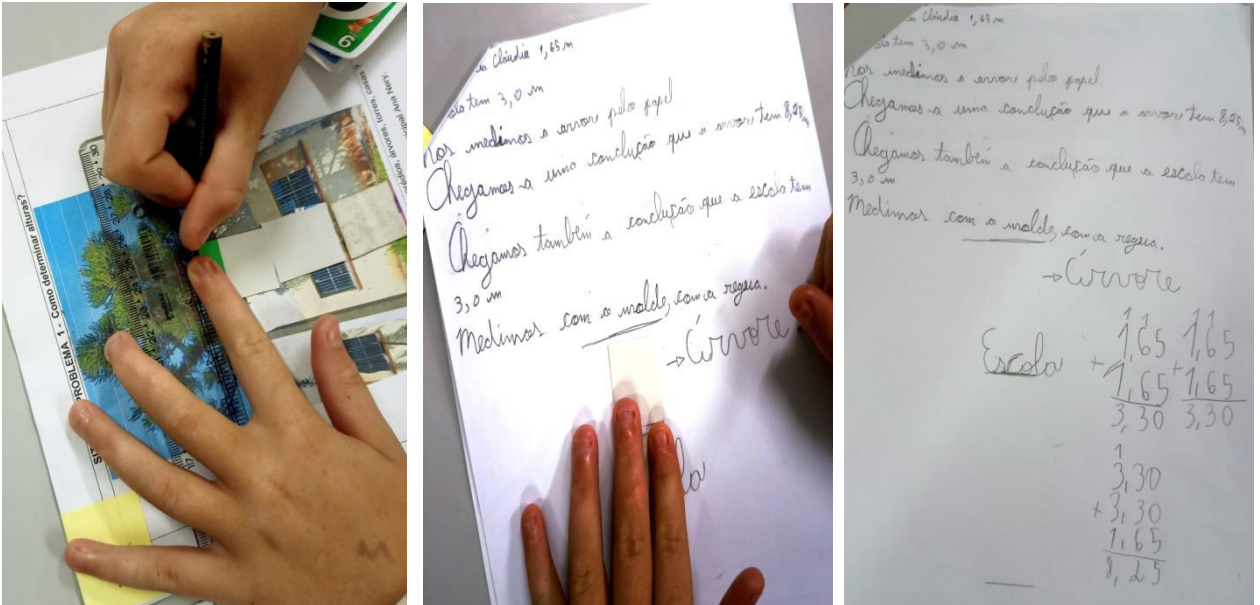 PROBLEMA 1 - Como determinar alturas?
prédios, árvores, torres, casas?
cipal Ana Nery,
Cláudia 1,65 m
tem 3,0 m
Nos medimos a arvore pelo papel.
Chegamos a uma conclução que a arvore tem 8,25m
Chegamos também a conclução que a escola tem
3,0 m
Medimos com o molde, com a regua.
→ Árvore
la
Cláudia 1,65 m
tem 3,0 m
Nos medimos a arvore pelo papel.
Chegamos a uma conclução que a arvore tem 8,25m
Chegamos também a conclução que a escola tem
3,0 m
Medimos com o molde, com a regua.
→ Árvore
Escola
1 1 1 1
1,65 1,65
+ 1,65 + 1,65
3,30 3,30
1
3,30
+ 3,30
1,65
8,25